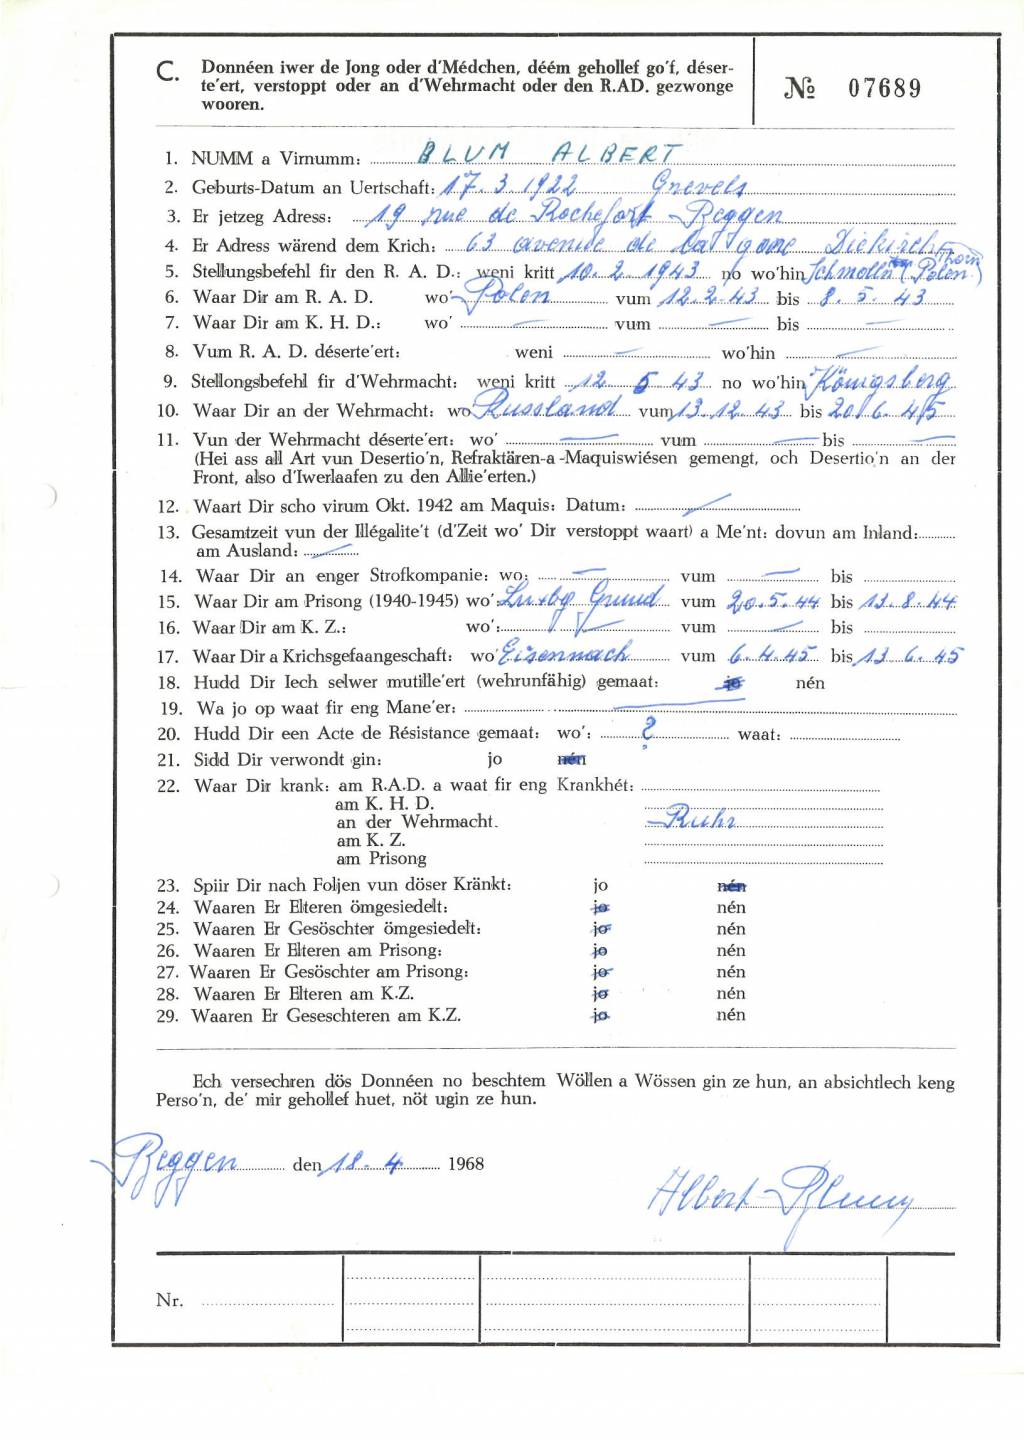 C. Donnéen iwer de Jong oder d'Médchen, déém gehollef go'f, déser-
te'ert, verstoppt oder an d'Wehrmacht oder den R.AD. gezwonge
wooren.
№ 07689
1. NUMM a Virnumm: BLUM ALBERT
2. Geburts-Datum an Uertschaft: 17.3.1922 Grevels
3. Er jetzeg Adress: 19 rue de Rochefort Beggen
4. Er Adress wärend dem Krich: 63 avenue de la gare Diekirch
5. Stellungsbefehl fir den R. A. D.: weni kritt 10.2.1943 no wo'hin Schmolln (Thorn Polen)
6. Waar Dir am R. A. D. wo' Polen vum 12.2.43 bis 8.5.43
7. Waar Dir am K. H. D.: wo' — vum — bis —
8. Vum R. A. D. déserte'ert: weni — wo'hin —
9. Stellongsbefehl fir d'Wehrmacht: weni kritt 12 5 43 no wo'hin Königsberg
10. Waar Dir an der Wehrmacht: wo Russland vum 13.12.43 bis 20.6.45
11. Vun der Wehrmacht déserte'ert: wo' — vum — bis —
(Hei ass all Art vun Desertio'n, Refraktären-a-Maquiswiésen gemengt, och Desertio'n an der
Front, also d'Iwerlaafen zu den Allie'erten.)
12. Waart Dir scho virum Okt. 1942 am Maquis: Datum: —
13. Gesamtzeit vun der Illégalite't (d'Zeit wo' Dir verstoppt waart) a Me'nt: dovun am Inland:
am Ausland: —
14. Waar Dir an enger Strofkompanie: wo: — vum — bis
15. Waar Dir am Prisong (1940-1945) wo': Luxbg Grund vum 20.5.44 bis 13.8.44
16. Waar Dir am K. Z.: wo': — vum — bis
17. Waar Dir a Krichsgefaangeschaft: wo' Eisennach vum 6.4.45 bis 13.6.45
18. Hudd Dir Iech selwer mutille'ert (wehrunfähig) gemaat: jo nén
19. Wa jo op waat fir eng Mane'er: —
20. Hudd Dir een Acte de Résistance gemaat: wo': ? waat:
21. Sidd Dir verwondt gin: jo nén
22. Waar Dir krank: am R.A.D. a waat fir eng Krankhét:
am K. H. D.
an der Wehrmacht. Ruhr
am K. Z.
am Prisong
23. Spiir Dir nach Foljen vun döser Kränkt: jo nén
24. Waaren Er Elteren ömgesiedelt: jo nén
25. Waaren Er Gesöschter ömgesiedelt: jo nén
26. Waaren Er Elteren am Prisong: jo nén
27. Waaren Er Gesöschter am Prisong: jo nén
28. Waaren Er Elteren am K.Z. jo nén
29. Waaren Er Geseschteren am K.Z. jo nén
Ech versechren dös Donnéen no beschtem Wöllen a Wössen gin ze hun, an absichtlech keng
Perso'n, de' mir gehollef huet, nöt ugin ze hun.
Beggen den 18.4 1968
Albert Blum
Nr.